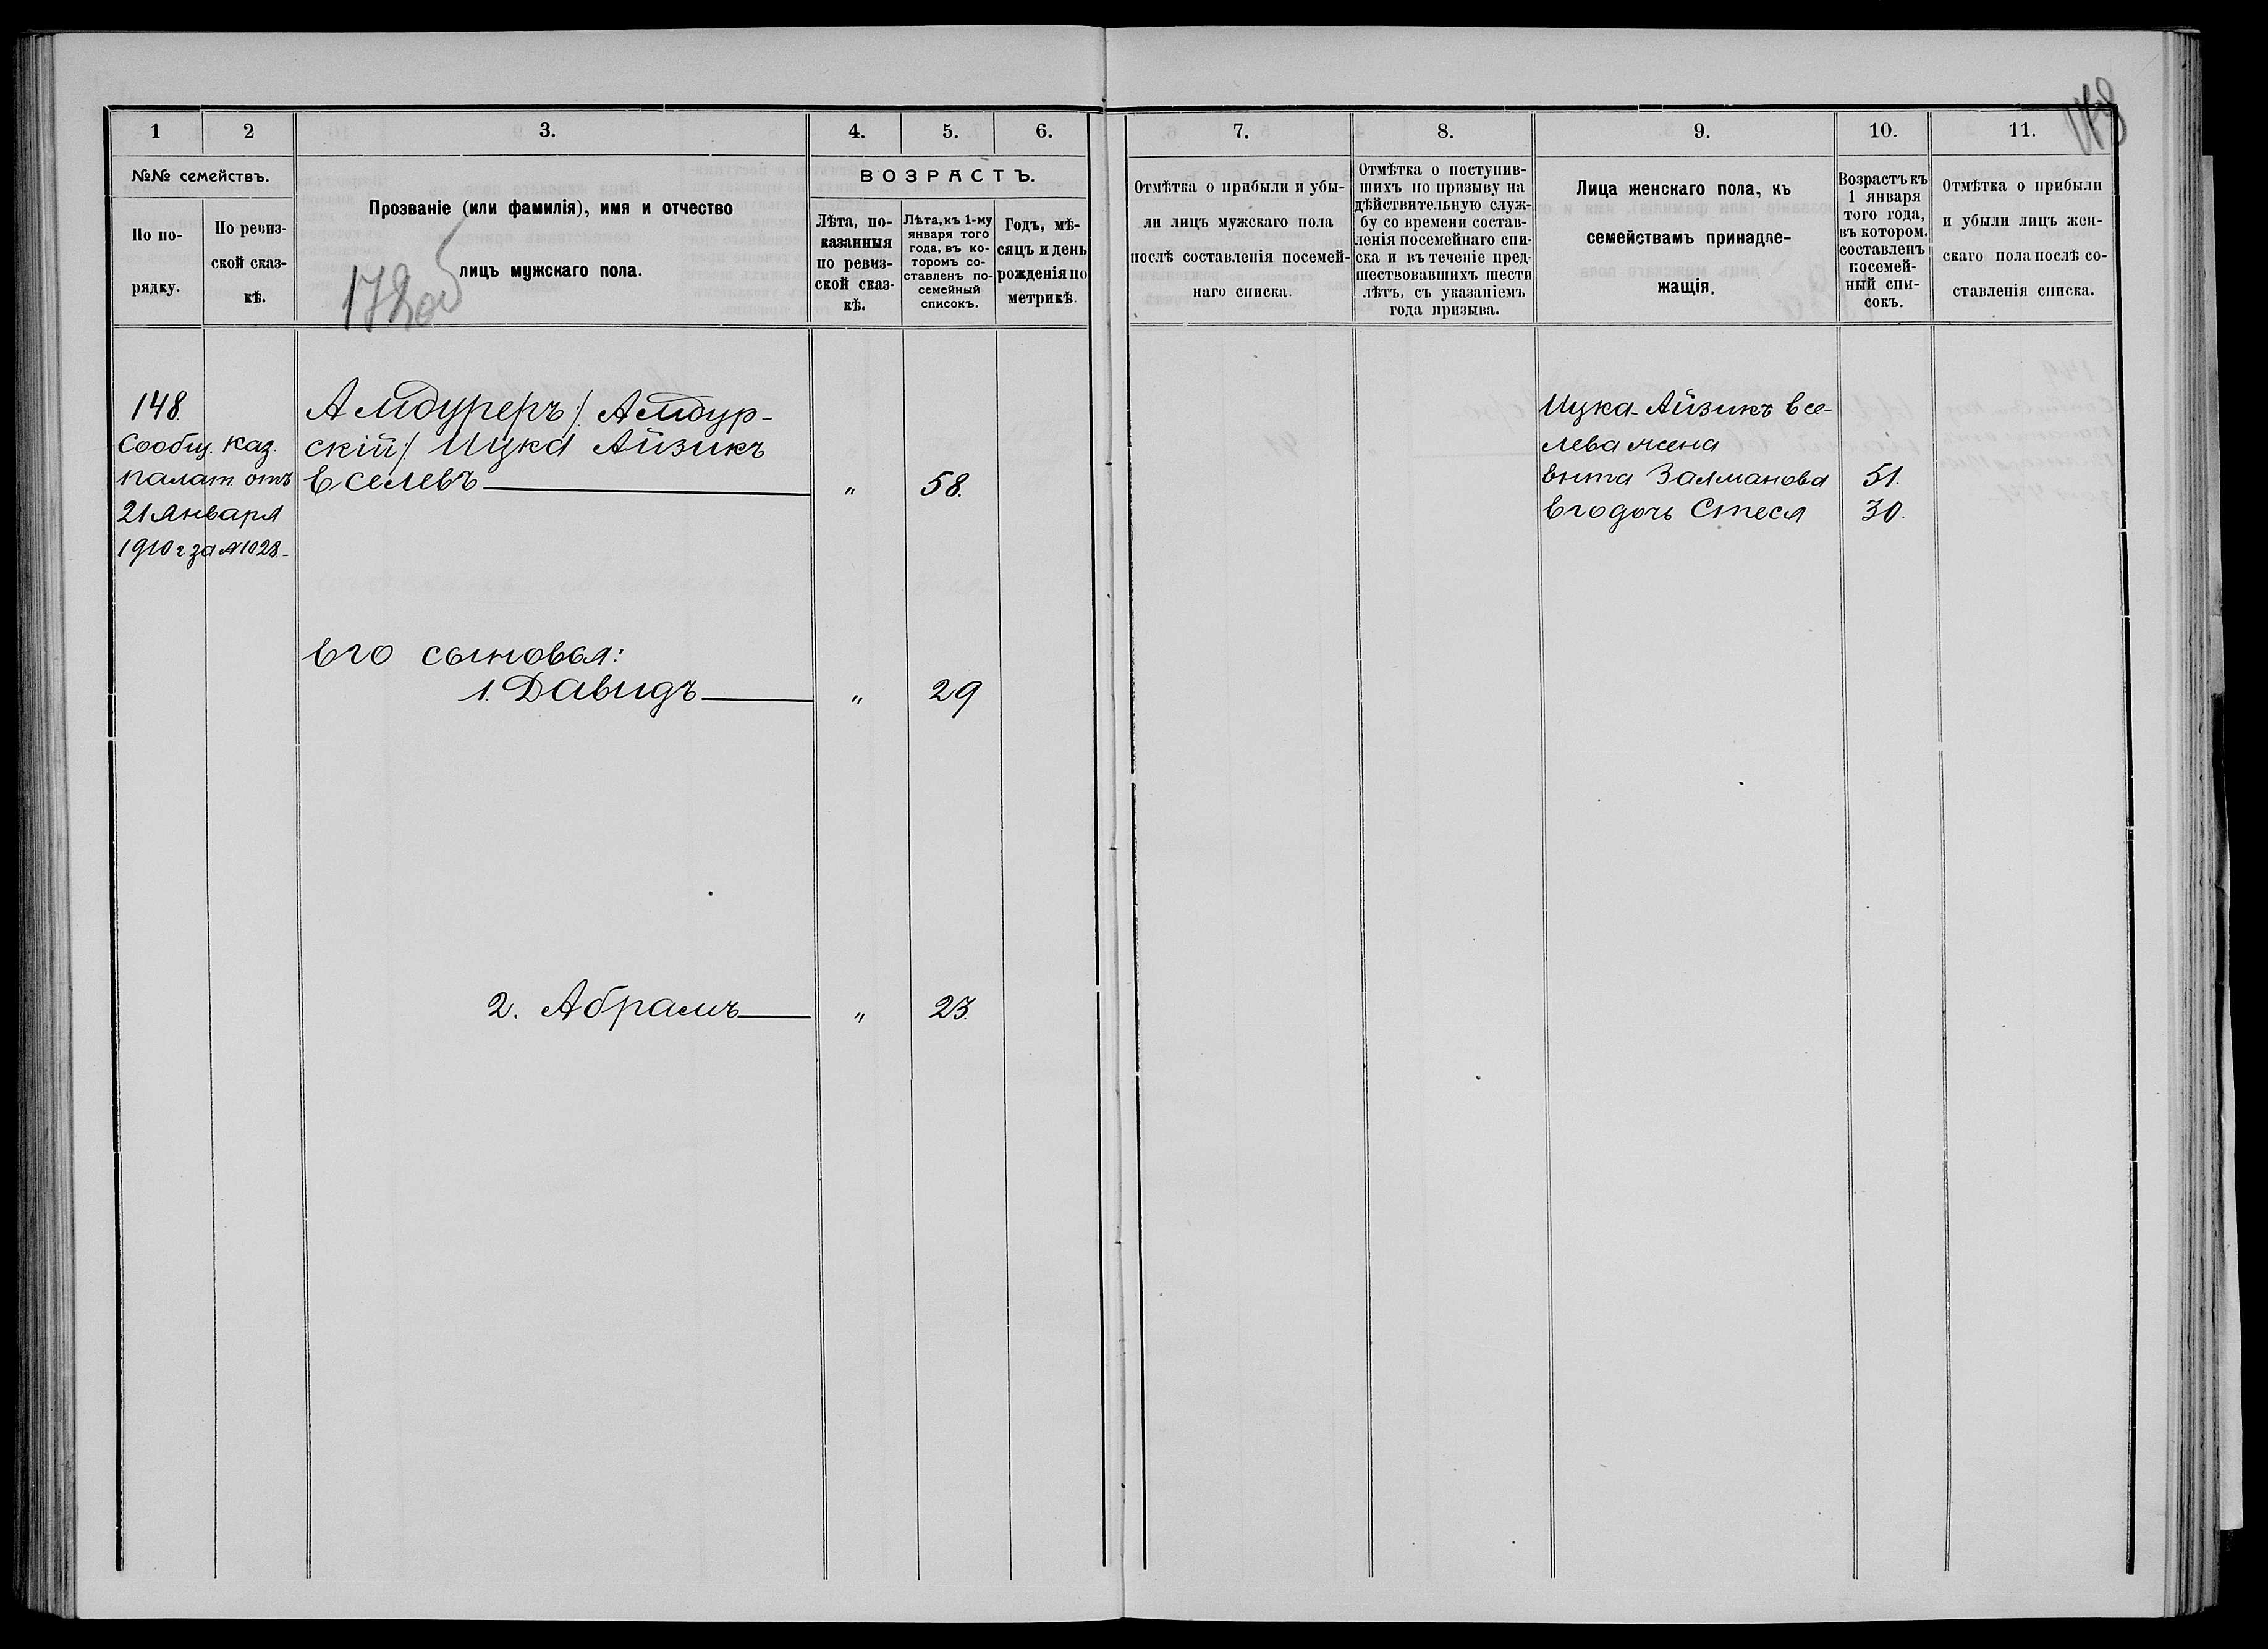 148
1
2
3.
4.
5.
6.
№№ семействъ.
По по-
рядку.
По ревиз-
ской сказ-
кѣ.
Прозваніе (или фамилія), имя и отчество
лицъ мужскаго пола.
ВОЗРАСТЪ.
Лѣта, по-
казанныя
по ревиз-
ской сказ-
кѣ.
Лѣта, къ 1-му
января того
года, въ ко-
торомъ со-
ставленъ по-
семейный
списокъ.
Годъ, мѣ-
сяцъ и день
рожденія по
метрикѣ.
148.
Сообщ. каз.
палат. отъ
21 Января
1910 г за №1028.-
Амдуреръ /: Амдур-
скій :/ Ицка Айзикъ
Еселевъ
"
58.
Его сыновья:
1. Давидъ
"
29
2. Абрамъ
"
23.
7.
8.
9.
10.
11.
Отмѣтка о прибыли и убы-
ли лицъ мужскаго пола
послѣ составленія посемей-
наго списка.
Отмѣтка о поступив-
шихъ по призыву на
дѣйствительную служ-
бу со времени состав-
ленія посемейнаго спи-
ска и въ теченіе пред-
шествовавшихъ шести
лѣтъ, съ указаніемъ
года призыва.
Лица женскаго пола, къ
семействамъ принадле-
жащія.
Возрастъ къ
1 января
того года,
въ котором.
составленъ
посемей-
ный спи-
сокъ.
Отмѣтка о прибыли
и убыли лицъ жен-
скаго пола послѣ со-
ставленія списка.
Ицка-Айзикъ Есе-
лева жена
Ента Залманова 51.
Его дочь Стеся 30.